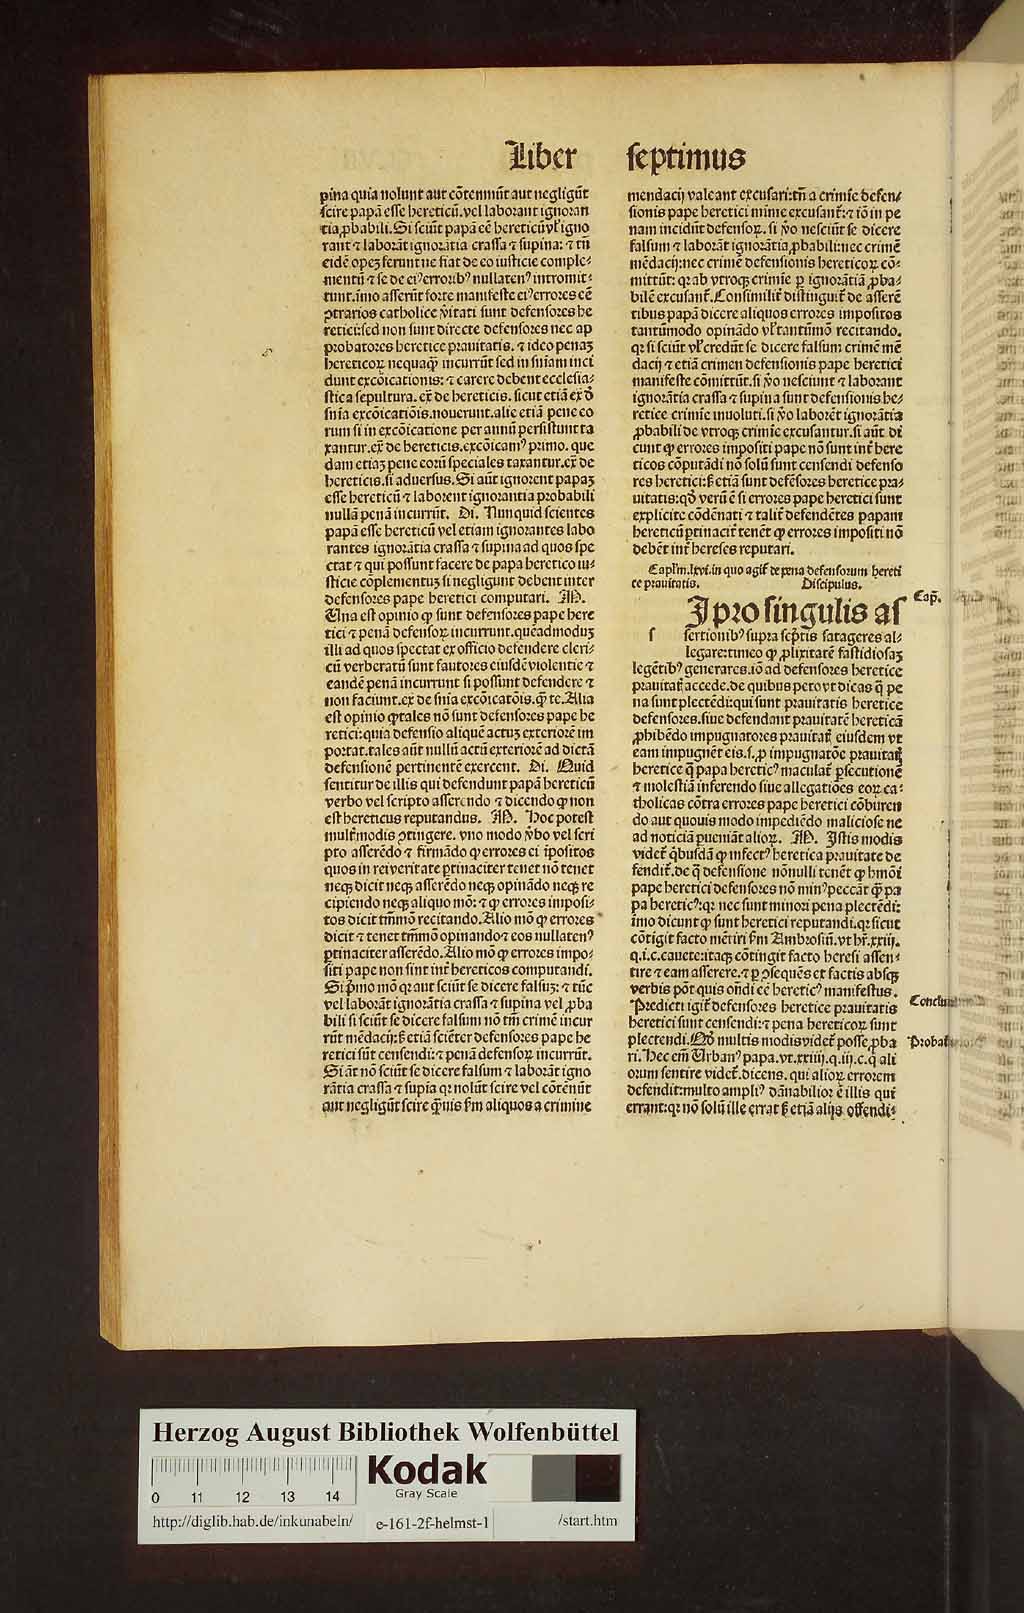 Liber septimus
pina quia nolunt aut cōtemnūt aut negligūt
scire papā esse hereticū. vel laborant ignoran
tia ꝓbabili. Si sciūt papā eē hereticū vl̕ igno
rant ⁊ laborāt ignorātia crassa ⁊ supina: ⁊ tn̄
eidē opeꝫ ferunt ne fiat de eo iusticie comple⸗
mentū ⁊ se de eiꝰ erroribꝰ nullatenꝰ intromit⸗
tunt. īmo asserūt forte manifeste eiꝰ errores eē
ꝯtrarios catholice v̄itati sunt defensores he
retici: sed non sunt directe defensores nec ap
probatores heretice prauitatis. ⁊ ideo penaꝫ
hereticoꝝ nequaqȝ̄ incurrūt sed in sn̄iam inci
dunt excōicationis: ⁊ carere debent ecclesia⸗
stica sepultura. ex̄ de hereticis. sicut etiā ex ꝺ̄
sn̄ia excōicatiōis. nouerunt. alie etiā pene eo
rum si in excōicatione per annū persistunt ta
xantur. ex̄ de hereticis. excōicamꝰ primo. que
dam etiaꝫ pene eorū speciales taxantur. ex̄ de
hereticis. si aduersus. Si aūt ignorent papaꝫ
esse hereticū ⁊ laborent ignorantia probabili
nullā penā incurrūt. Di. Nunquid scientes
papā esse hereticū vel etiam ignorantes labo
rantes ignorātia crassa ⁊ supina ad quos spe
ctat ⁊ qui possunt facere de papa heretico iu⸗
sticie cōplementuꝫ si negligunt debent inter
defensores pape heretici computari. M.
Una est opinio ꝙ sunt defensores pape here
tici ⁊ penā defensoꝝ incurrunt. quēadmoduꝫ
illi ad quos spectat ex officio defendere cleri⸗
cū verberatū sunt fautores eiusdē violentie ⁊
eandē penā incurrunt si possunt defendere ⁊
non faciunt. ex̄ de sn̄ia excōicatōis. q̄ te. Alia
est opinio ꝙ tales nō sunt defensores pape he
retici: quia defensio aliquē actuꝫ exteriorē im
portat. tales aūt nullū actū exteriorē ad dictā
defensionē pertinentē exercent. Di. Quid
sentitur de illis qui defendunt papā hereticū
verbo vel scripto asserendo ⁊ dicendo ꝙ non
est hereticus reputandus. M. Hoc potest
mult̕modis ꝯtingere. vno modo v̄bo vel scri
pto asserēdo ⁊ firmādo ꝙ errores ei īpositos
quos in rei veritate ꝑtinaciter tenet nō tenet
neqꝫ dicit neqꝫ asserēdo neqꝫ opinādo neqꝫ re
cipiendo neqꝫ aliquo mō: ⁊ ꝙ errores imposi⸗
tos dicit tm̄mō recitando. Alio mō ꝙ errores
dicit ⁊ tenet tm̄mō opinando ⁊ eos nullatenꝰ
ꝑtinaciter asserēdo. Alio mō ꝙ errores impo⸗
siti pape non sint int̕ hereticos computandi.
Si p̄mo mō qꝛ aut sciūt se dicere falsuꝫ: ⁊ tūc
vel laborāt ignorātia crassa ⁊ supina vel ꝓba
bili si sciūt se dicere falsum nō tm̄ crimē incur
rūt mēdacij: sꝫ etiā sciēter defensores pape he
retici sūt censendi: ⁊ penā defensoꝝ incurrūt.
Si āt nō sciūt se dicere falsum ⁊ laborāt igno
rātia crassa ⁊ supīa qꝛ nolūt scire vel cōtēnūt
aut negligūt scire q̄uis ẜm aliquos a crimine
mendacij valeant excusari: tn̄ a crimīe defen⸗
sionis pape heretici mīme excusant̕: ⁊ iō in pe
nam incidūt defensoꝝ. si v̄o nesciūt se dicere
falsum ⁊ laborāt ignorātia ꝓbabili: nec crimē
mēdacij: nec crimē defensionis hereticoꝝ cō⸗
mittūt: qꝛ ab vtroqꝫ crimīe ꝑ ignorātiā ꝓba⸗
bilē excusant̕. Consimilit̕ distinguit̕ de asserē
tibus papā dicere aliquos errores impositos
tantūmodo opinādo vl̕ tantūmō recitando.
qꝛ si sciūt vl̕ credūt se dicere falsum crimē mē
dacij ⁊ etiā crimen defensionis pape heretici
manifeste cōmittūt. si v̄o nesciunt ⁊ laborant
ignorātia crassa ⁊ supina sunt defensionis he⸗
retice crimīe inuoluti. si v̄o laborēt ignorātia
ꝓbabili de vtroqꝫ crimīe excusantur. si aūt di
cunt ꝙ errores impositi pape nō sunt int̕ here
ticos cōputādi nō solū sunt censendi defenso
res heretici: sꝫ etiā sunt defēsores heretice pra⸗
uitatis: qd̓ verū ē si errores pape heretici sunt
explicite cōdēnati ⁊ talit̕ defendētes papam
hereticū ꝑtinacit̕ tenēt ꝙ errores impositi nō
debēt int̕ hereses reputari.
Capl̕m. lxvi. in quo agit̕ de pena defensorum hereti
ce prauitatis. Discipulus.
Cap̄.
s I pro singulis as
sertionibꝰ supra scp̄tis satageres al⸗
legare: timeo ꝙ ꝓlixitatē fastidiosaꝫ
legētibꝰ generares. iō ad defensores heretice
prauitat̕ accede. de quibus peto vt dicas q̄ pe
na sunt plectēdi: qui sunt prauitatis heretice
defensores. siue defendant prauitatē hereticā
ꝓhibēdo impugnatores prauitat̕ eiusdem vt
eam impugnēt eis. s. ꝓ impugnatōe prauitat̕
heretice q̄ papa hereticꝰ maculat̕ ꝑsecutionē
⁊ molestiā inferendo siue allegatiōes eoꝝ ca⸗
tholicas cōtra errores pape heretici cōburen
do aut quouis modo impediēdo maliciose ne
ad noticiā ꝑueniāt alioꝝ. M. Istis modis
videt̕ q̄busdā ꝙ infectꝰ heretica prauitate de
fendit̕. de q̄ defensione nōnulli tenēt ꝙ hmōi
pape heretici defensores nō minꝰ peccāt q̄ꝫ pa
pa hereticꝰ: qꝛ nec sunt minori pena plectēdi:
īmo dicunt ꝙ sunt heretici reputandi. qꝛ sicut
cōtigit facto mētiri ẜm Ambrosiū. vt hr̄. xxiij.
q. i. c. cauete: itaqꝫ cōtingit facto heresi assen⸗
tire ⁊ eam asserere. ⁊ ꝑ ꝯsequēs et factis absqꝫ
verbis pōt quis on̄di eē hereticꝰ manifestus.
Predicti igit̕ defensores heretice prauitatis
heretici sunt censendi: ⁊ pena hereticoꝝ sunt
plectendi. Qd̓ multis modis videt̕ posse ꝓba
ri. Hec em̄ Urbanꝰ papa. vt. xxiiij. q. iij. c. q̄ ali
orum sentire videt̕. dicens. qui alioꝝ errorem
defendit: multo ampliꝰ dānabilior ē illis qui
errant: qꝛ nō solū ille errat sꝫ etiā alijs offendi⸗
Herzog August Bibliothek Wolfenbüttel
0 11 12 13 14
Kodak
Gray Scale
http://diglib.hab.de/inkunabeln/ e-161-2f-helmst-1 /start.htm